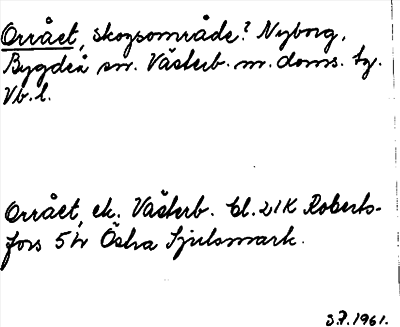 Orrået, skogsområde? Nyborg,
Bygdeå sn. Västerb. m. doms. tg.
Vb. l.
Orrået, ek. Västerb. bl. 21K Roberts-
fors 5h Östra Sjulsmark.
3.7.1961.